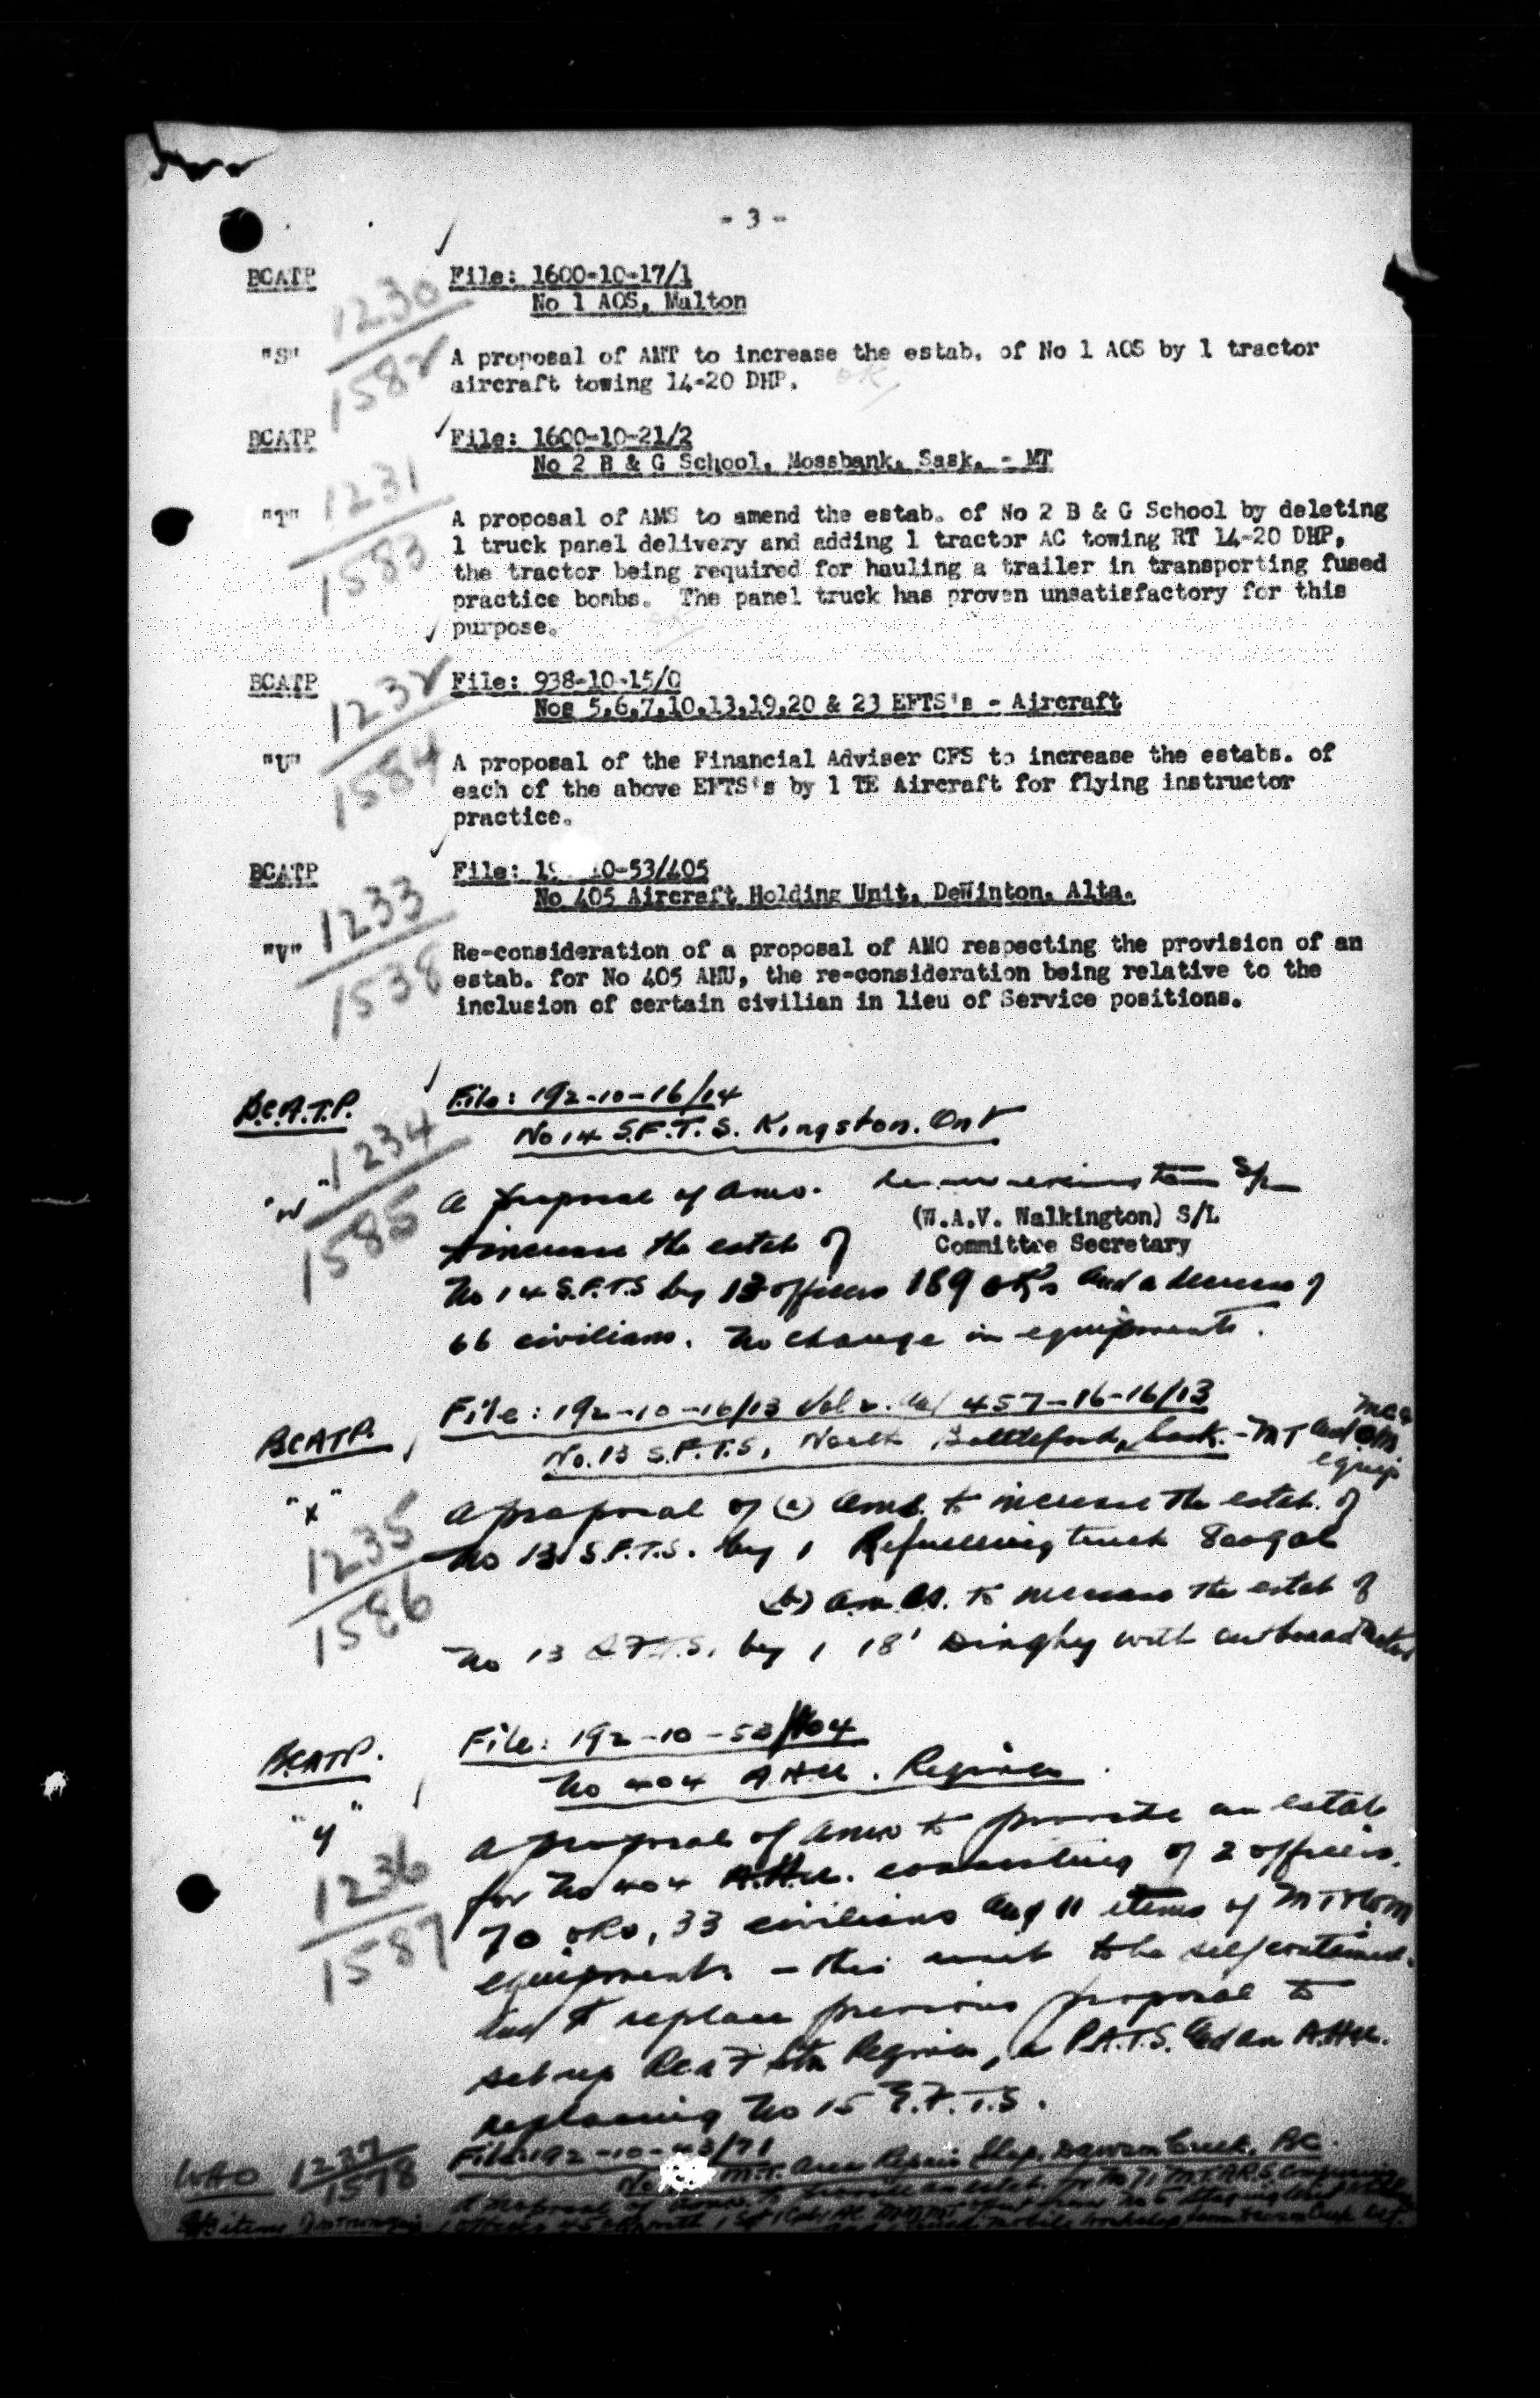 - 3 -
BCATP File: 1600-10-17/1
No 1 AOS, Malton
1230
"S" A proposal of AMT to increase the estab. of No 1 AOS by 1 tractor
1582 aircraft towing 14-20 DHP. ok
BCATP File: 1600-10-21/2
No 2 B & G School, Mossbank, Sask. - MT
1231
"T" A proposal of AMS to amend the estab. of No 2 B & G School by deleting
1 truck panel delivery and adding 1 tractor AC towing RT 14-20 DHP,
1583 the tractor being required for hauling a trailer in transporting fused
practice bombs. The panel truck has proven unsatisfactory for this
purpose.
BCATP File: 938-10-15/Q
1232 Nos 5,6,7,10,13,19,20 & 23 EFTS's - Aircraft
"U" A proposal of the Financial Adviser CFS to increase the estabs. of
1584 each of the above EFTS's by 1 TE Aircraft for flying instructor
practice.
BCATP File: 19 10-53/405
1233 No 405 Aircraft Holding Unit, DeWinton, Alta.
"V" Re-consideration of a proposal of AMO respecting the provision of an
1538 estab. for No 405 AHU, the re-consideration being relative to the
inclusion of certain civilian in lieu of Service positions.
B.C.A.T.P. File: 192-10-16/14
No 14 S.F.T.S. Kingston. Ont
1234
"W" A proposal of amo.
(W.A.V. Walkington) S/L
1585 increase the estab of
Committee Secretary
No 14 S.F.T.S by 13 officers 189 ORs and a decrease of
66 civilians. No change in equipments.
BCATP. File: 192-10-16/13 Vol 2. and 457-16-16/13
No. 13 S.F.T.S, North Battleford, Sask. - MT and
equip
"X" A proposal of (a) to increase the estab. of
1235 No 13 S.F.T.S. by 1 Refuelling truck 800 gal
1586 (b) to increase the estab of
No 13 S.F.T.S. by 1 18' Dinghy with outboard motor
BCATP. File: 192-10-53/404
No 404 AHU. Regina
"Y" A proposal of amo to provide an estab
1236 for No 404 A.H.U. consisting of 2 officers,
1587 70 ORs, 33 civilians and 11 items of
equipments - this unit to be self contained.
and to replace previous proposal to
set up RCAF Stn Regina, a P.A.T.S. and an A.H.U.
replacing No 15 E.F.T.S.
WAO 1237 File: 192-10-43/71
1578 No M.T. Area Repair Shop, Dawson Creek, BC.